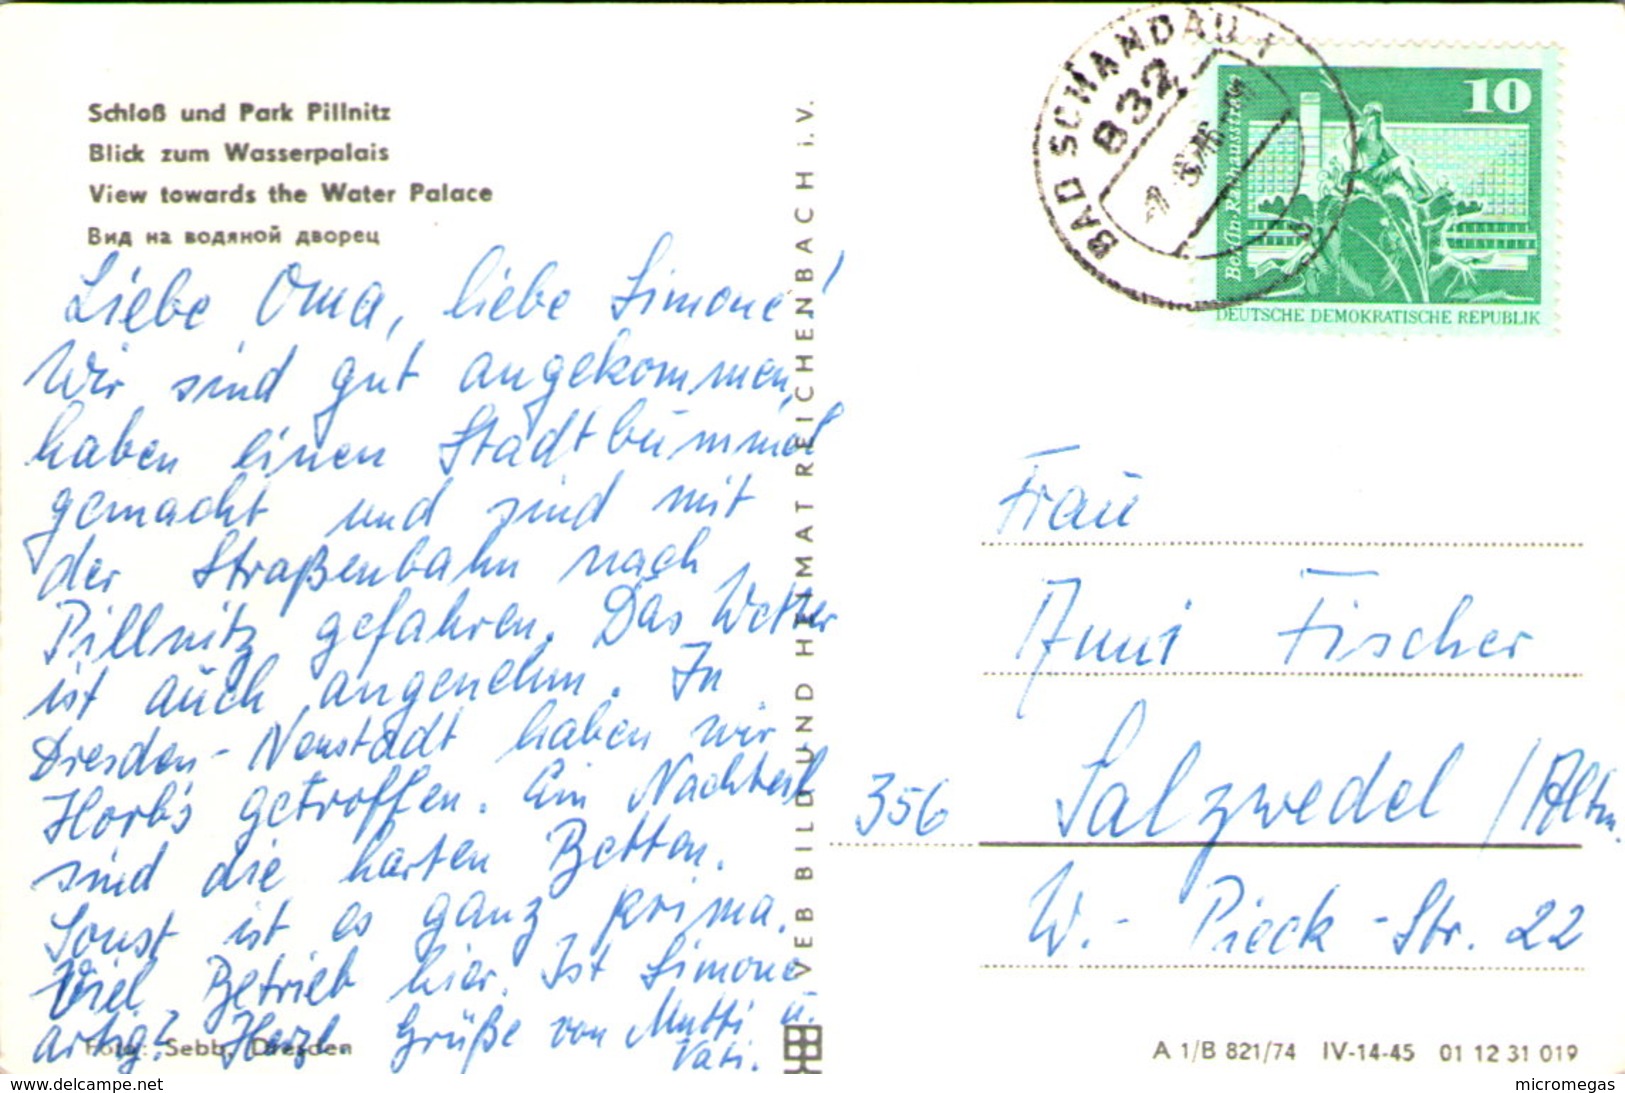 Schloß und Park Pillnitz
Blick zum Wasserpalais
View towards the Water Palace
Вид на водяной дворец
Liebe Oma, liebe Simone!
Wir sind gut angekommen,
haben einen Stadtbummel
gemacht und sind mit
der Straßenbahn nach
Pillnitz gefahren. Das Wetter
ist auch angenehm. In
Dresden-Neustadt haben wir
Horbs getroffen. Ein Nachteil
sind die harten Betten.
Sonst ist es ganz prima.
Viel Betrieb hier. Ist Simone
artig? Herzl. Grüße von Mutti u.
Vati.
Foto: Sebb, Dresden
VEB BILD UND HEIMAT REICHENBACH i. V.
BAD SCHANDAU 1
832
10
Berlin-Rathausstraße
DEUTSCHE DEMOKRATISCHE REPUBLIK
Frau
Anni Fischer
356 Salzwedel /Altm.
W.-Pieck-Str. 22
A 1/B 821/74 IV-14-45 01 12 31 019
delcampe.net
micromegas